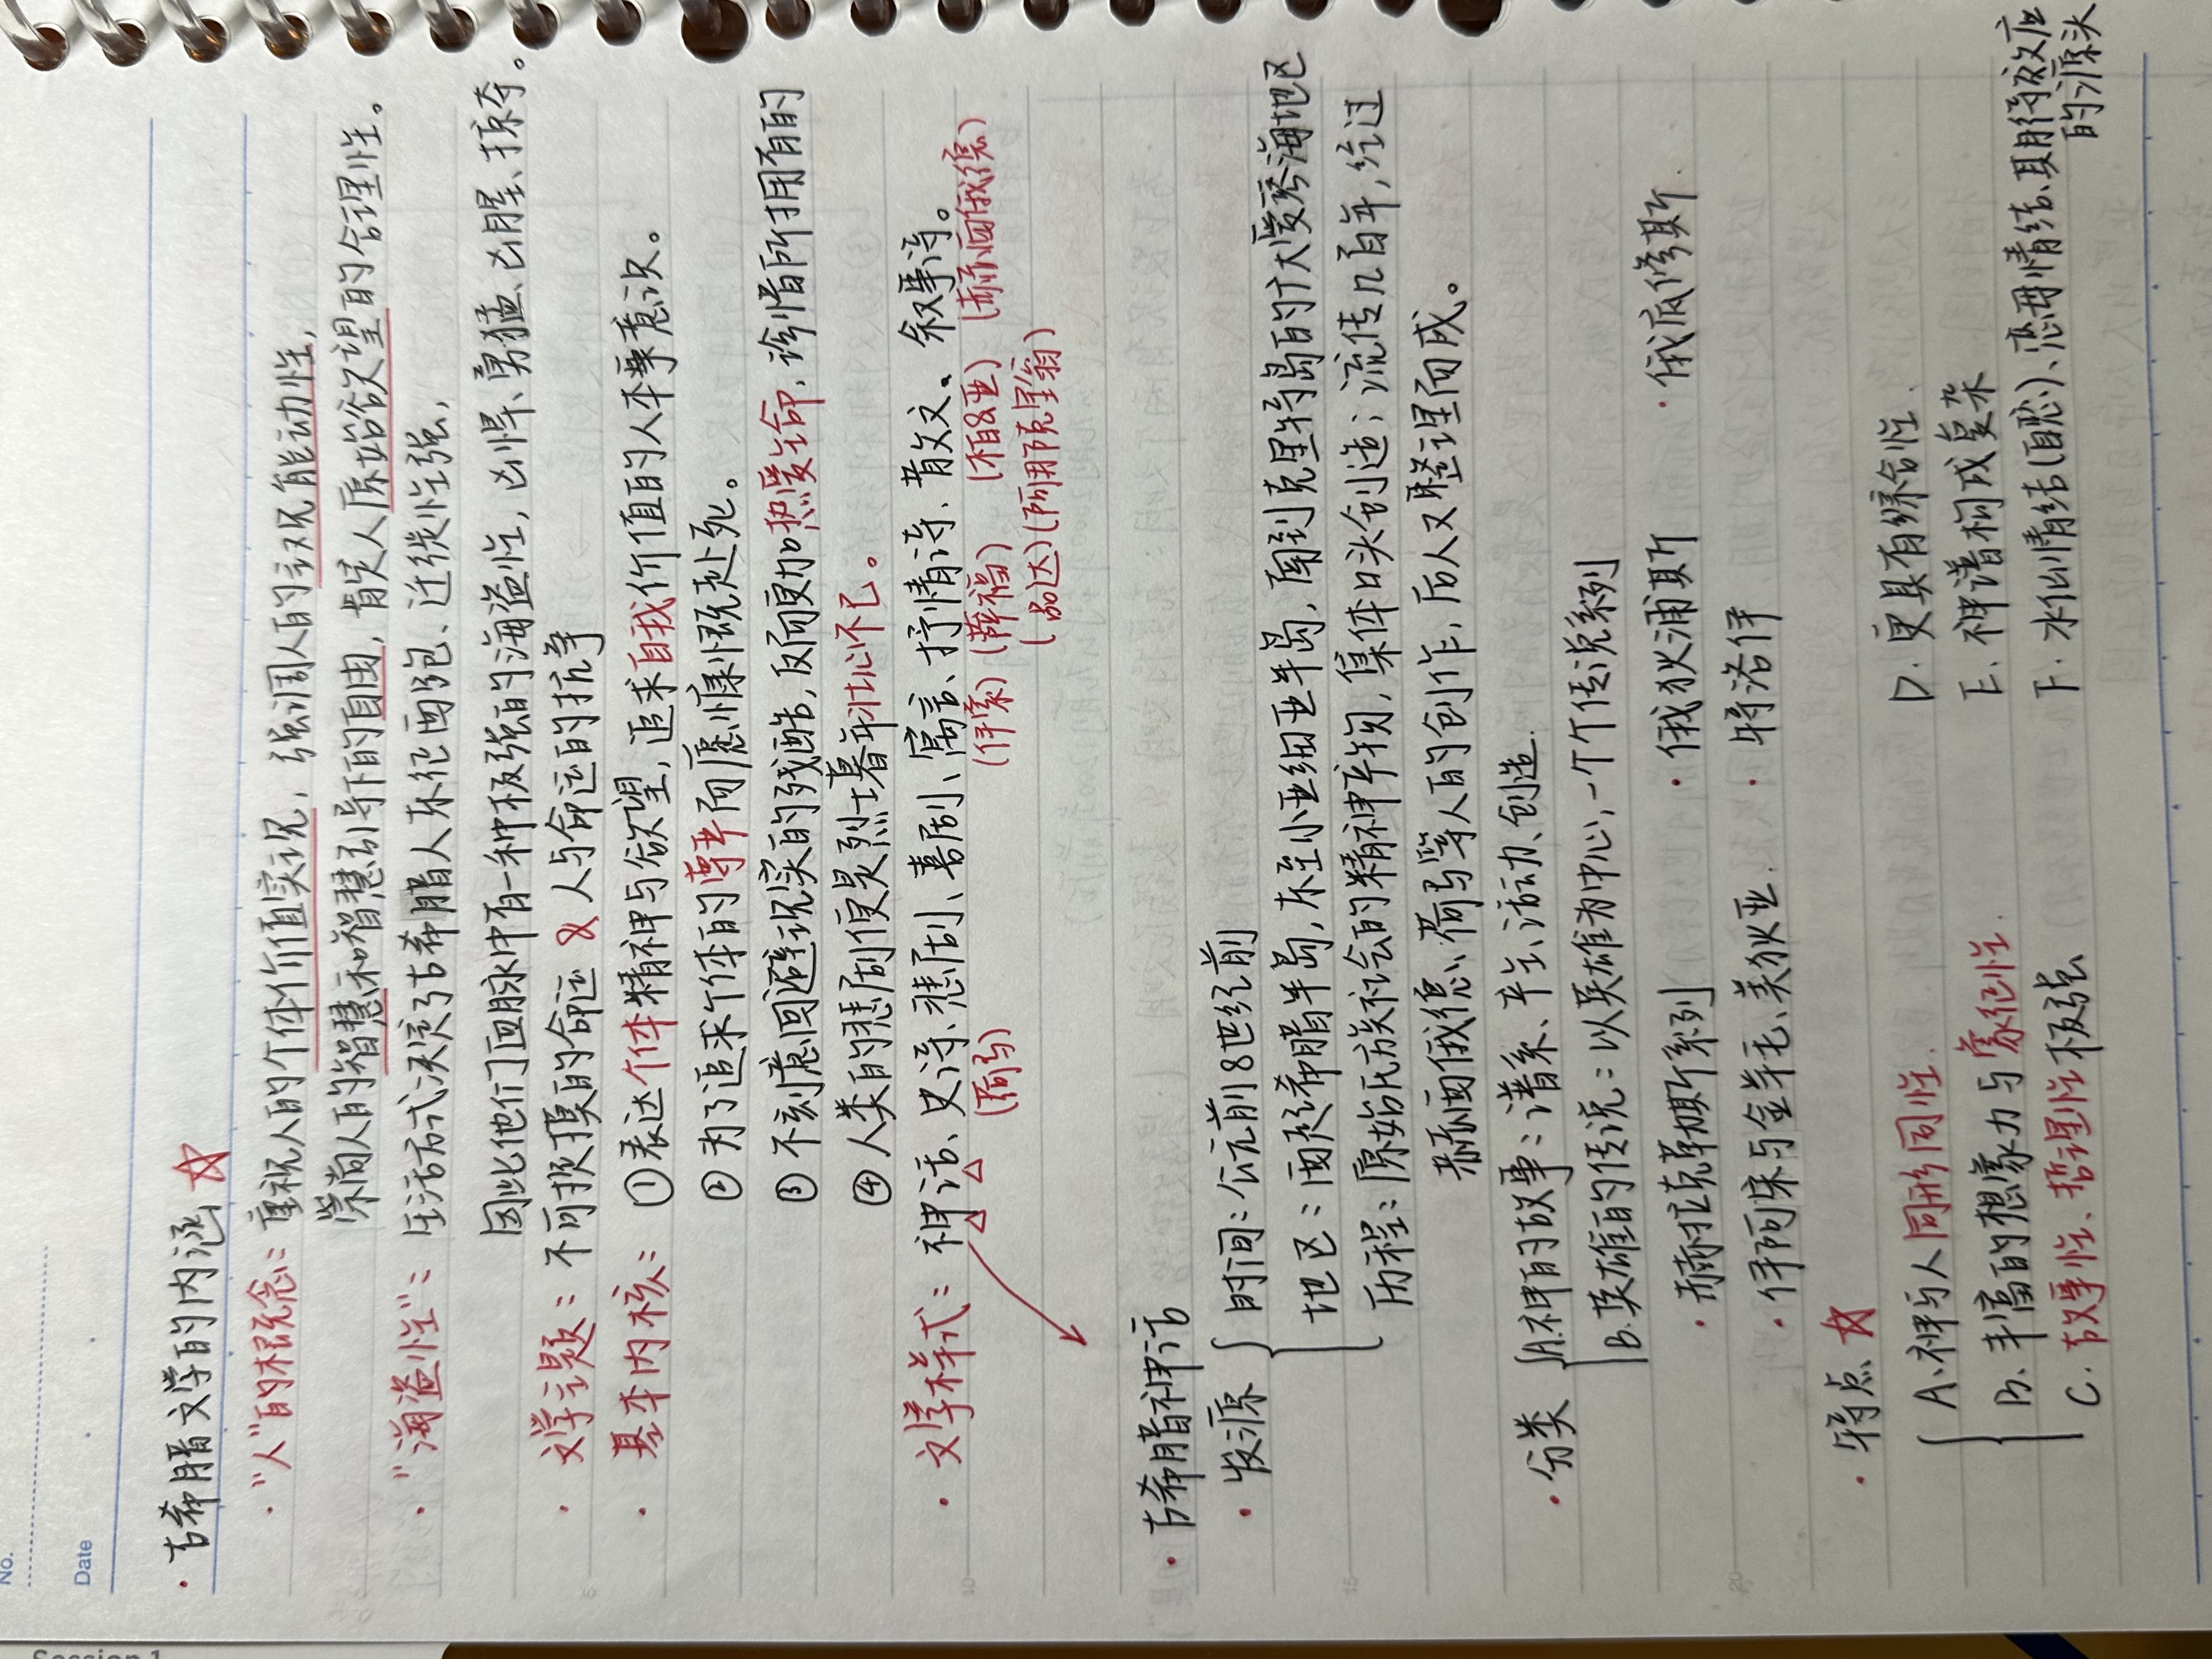 No.
Date
Session 1
·古希腊文学的内涵☆
·"人"的概念:重视人的个体价值实现,强调人的主观能动性,
崇尚人的智慧和智慧引导下的自由,肯定人原始欲望的合理性。
·"海盗性":生活方式决定了古希腊人东征西跑、迁徙性强,
因此他们血脉中有一种极强的海盗性,凶悍、勇猛、凶腥、掠夺。
·文学主题:不可捉摸的命运 & 人与命运的抗争
·基本内核:①表达个体精神与欲望,追求自我价值的人本事意识。
②为了追求个体的尊严而愿慷慨赴死。
③不刻意回避现实的残酷,反而更加热爱生命,珍惜所拥有的
④人类的悲剧便是烈士暮年壮心不已。
·文学样式:神话、史诗、悲剧、喜剧、寓言、抒情诗、散文。叙事诗。
(荷马) (伊索)(萨福) (柏&亚) (赫西俄德)
(品达)(阿那克里翁)
·古希腊神话
·发源 时间:公元前8世纪前
地区:西起希腊半岛,东至小亚细亚半岛,南到克里特岛的广大爱琴海地区
历程:原始氏族社会的精神产物,集体口头创造;流传几百年,经过
赫西俄德、荷马等人的创作,后人又整理而成。
·分类 A.神的故事:谱系、产生、活动、创造.
B.英雄的传说:以英雄为中心,一个个传说系列
·赫拉克勒斯系列 ·俄狄浦斯 ·俄底修斯.
·伊阿宋与金羊毛、美狄亚. ·特洛伊
·特点☆
A.神与人同形同性. D.更具有综合性.
B.丰富的想象力与象征性. E.神谱构成复杂
C.故事性、哲理性极强 F.水仙情结(自恋)、恋母情结、期待效应
的源头